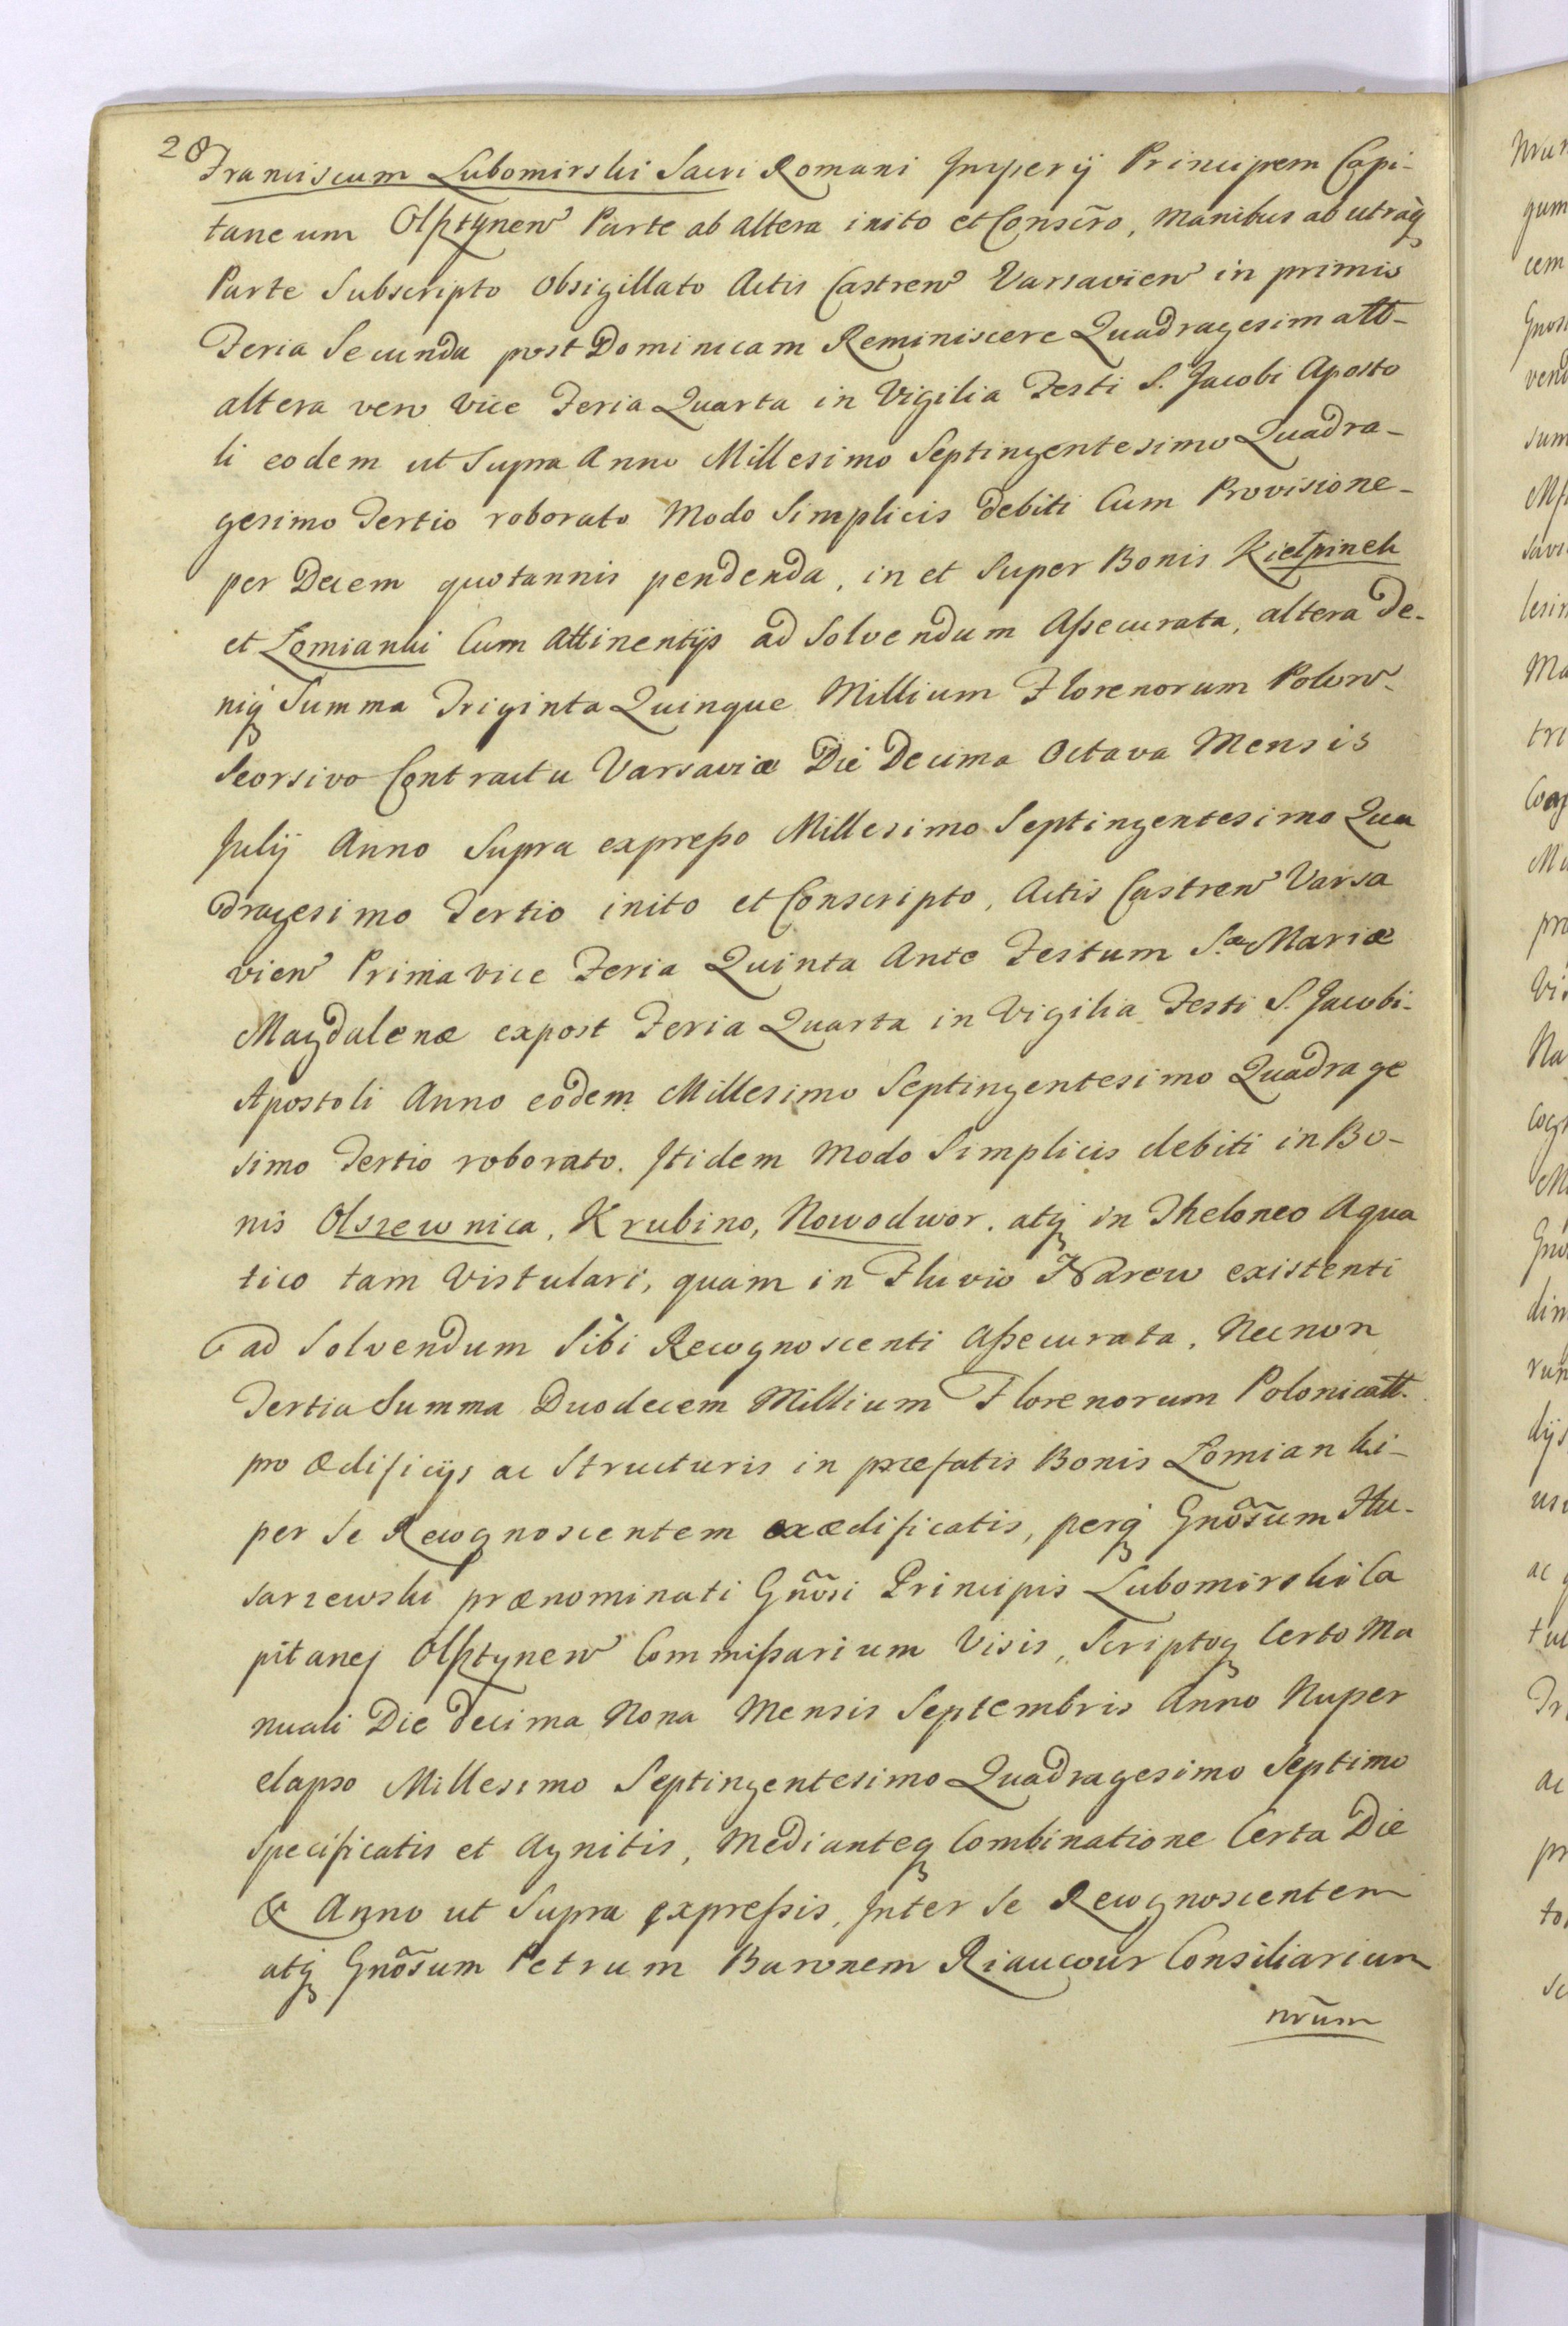 28
Franciscum Lubomirski Sacri Romani Imperij Principem Capi-
taneum Olsztynen Parte ab altera inito et Conscr̃o, manibus ab utraq
Parte Subscripto Obsigillato Actis Castren Varsavien in primis
Feria Secunda post Dominicam Reminiscere Quadragesimatt-
altera vero vice Feria Quarta in Vigilia Festi S. Jacobi Aposto
li eodem ut Supra Anno Millesimo Septingentesimo Quadra-
gesimo Tertio roborato Modo Simplicis debiti Cum Provisione-
per Decem quotannis pendenda, in et Super Bonis Kiełpinek
et Łomianki Cum Attinentijs ad Solvendum Aßecurata, altera de-
niq Summa Triginta Quinque Millium Florenorum Polon-
Seorsivo Contractu Varsaviæ Die Decima Octava Mensis
Julij Anno Supra expreßo Millesimo Septingentesimo Qua
dragesimo Tertio inito et Conscripto, Actis Castren Varsa
vien Prima vice Feria Quinta Ante Festum S.æ Mariæ
Magdalenæ expost Feria Quarta in Vigilia Festi S. Jacobi-
Apostoli Anno eodem Millesimo Septingentesimo Quadrage
simo Tertio roborato. Itidem Modo Simplicis debiti in Bo-
nis Olszewnica, Krubino, Nowodwor. atq in Theloneo Aqua
tico tam Vistulari, quam in Fluvio Narew existenti
ad Solvendum Sibi Recognoscenti Aßecurata, Necnon
Tertia Summa Duodecem Millium Florenorum Polonicatt.
pro ædificijs ac Structuris in præfatis Bonis Łomianki-
per Se Recognoscentem exædificatis, perq Gnõsum Hu-
sarzewski prænominati Gnõsi Principis Lubomirski Ca
pitanej Olsztynen Commißarium Visis, Scriptoq Certo Ma
nuali Die decima Nona Mensis Septembris Anno Nuper
elapso Millesimo Septingentesimo Quadragesimo Septimo
Specificatis et Agnitis, Medianteq Combinatione Certa Die
& Anno ut Supra expreßis, Inter Se Recognoscentem
atq Gnõsum Petrum Baronem Riaucour Consiliarium
nr̃um